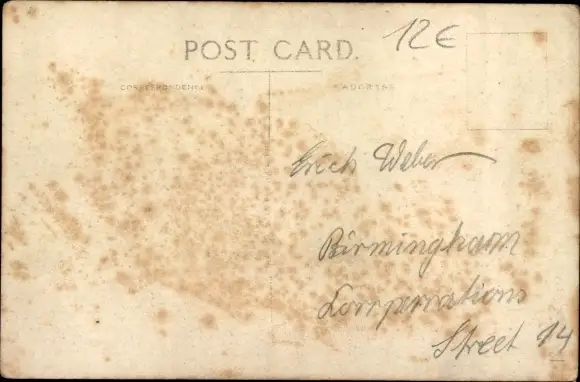 12€
POST CARD.
CORRESPONDENCE
ADDRESS
Erich Weber
Birmingham
Corporations
Street 14